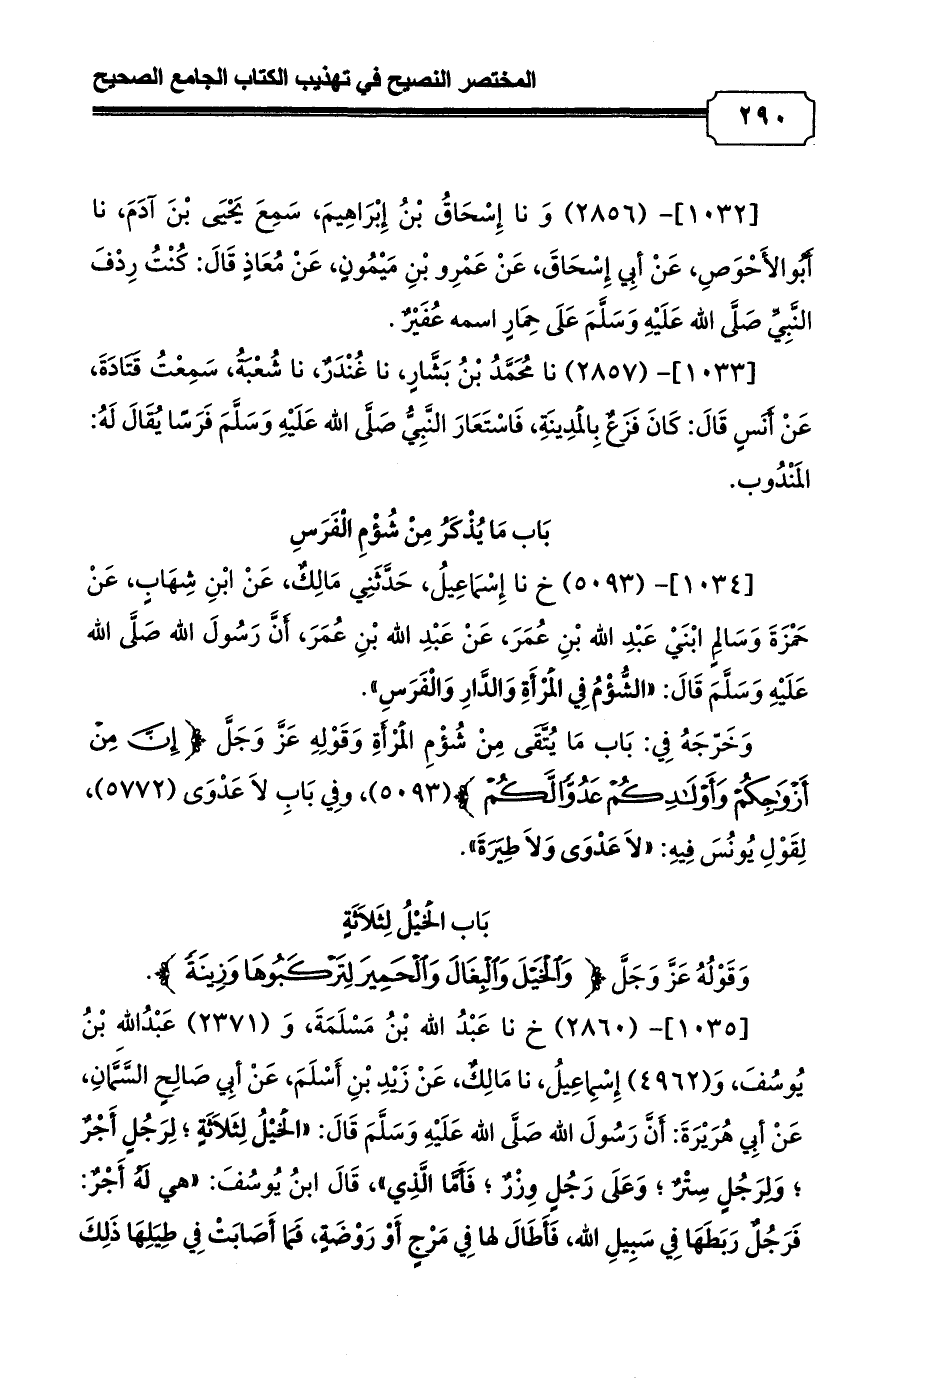 المختصر النصيح في تهذيب الكتاب الجامع الصحيح
٢٩٠
[١٠٣٢]- (٢٨٥٦) وَ نا إِسْحَاقُ بْنُ إِبْرَاهِيمَ، سَمِعَ يَحْيَى بْنَ آدَمَ، نا
أَبُوالأَحْوَصِ، عَنْ أبِي إِسْحَاقَ، عَنْ عَمْرِو بْنِ مَيْمُونٍ، عَنْ مُعَاذٍ قَالَ: كُنْتُ رِدْفَ
النَّبِيِّ صَلَّى الله عَلَيْهِ وَسَلَّمَ عَلَى حِمَارٍ اسمه عُفَيْرٌ .
[١٠٣٣]- (٢٨٥٧) نا مُحَمَّدُ بْنُ بَشَّارٍ، نا غُنْدَرٌ، نا شُعْبَةُ، سَمِعْتُ قَتَادَةَ،
عَنْ أَنَسٍ قَالَ: كَانَ فَزَعٌ بِالْمَدِينَةِ، فَاسْتَعَارَ النَّبِيُّ صَلَّى الله عَلَيْهِ وَسَلَّمَ فَرَسًا يُقَالَ لَهُ:
المَنْدُوب.
بَاب مَا يُذْكَرُ مِنْ شُؤْمِ الْفَرَسِ
[١٠٣٤]- (٥٠٩٣) خ نا إِسْمَاعِيلُ، حَدَّثَنِي مَالِكٌ، عَنْ ابْنِ شِهَابٍ، عَنْ
حَمْزَةَ وَسَالِمٍ ابْنَيْ عَبْدِ الله بْنِ عُمَرَ، عَنْ عَبْدِ الله بْنِ عُمَرَ، أَنَّ رَسُولَ الله صَلَّى الله
عَلَيْهِ وَسَلَّمَ قَالَ: «الشُّؤْمُ فِي المَرْأَةِ وَالدَّارِ وَالْفَرَسِ».
وَخَرَّجَهُ فِي: بَاب مَا يُتَّقَى مِنْ شُؤْمِ المَرْأَةِ وَقَوْلِهِ عَزَّ وَجَلَّ ﴿ إِنَّ مِنْ
أَزْوَٰجِكُمْ وَأَوْلَٰدِكُمْ عَدُوًّا لَّكُمْ ﴾(٥٠٩٣)، وفِي بَابِ لاَ عَدْوَى (٥٧٧٢)،
لِقَوْلِ يُونُسَ فِيهِ: «لاَ عَدْوَى وَلاَ طِيَرَةَ».
بَاب الخَيْلُ لِثَلاَثَةٍ
وَقَوْلُهُ عَزَّ وَجَلَّ ﴿ وَٱلْخَيْلَ وَٱلْبِغَالَ وَٱلْحَمِيرَ لِتَرْكَبُوهَا وَزِينَةً ﴾.
[١٠٣٥]- (٢٨٦٠) خ نا عَبْدُ الله بْنُ مَسْلَمَةَ، وَ (٢٣٧١) عَبْدُالله بْنُ
يُوسُفَ، وَ(٤٩٦٢) إِسْمِاعِيلُ، نا مَالِكٌ، عَنْ زَيْدِ بْنِ أَسْلَمَ، عَنْ أبِي صَالِحٍ السَّمَّانِ،
عَنْ أبِي هُرَيْرَةَ: أَنَّ رَسُولَ الله صَلَّى الله عَلَيْهِ وَسَلَّمَ قَالَ: «الْخَيْلُ لِثَلاَثَةٍ ؛ لِرَجُلٍ أَجْرٌ
؛ وَلِرَجُلٍ سِتْرٌ ؛ وَعَلَى رَجُلٍ وِزْرٌ ؛ فَأَمَّا الَّذِي»، قَالَ ابنُ يُوسُفَ: «هي لَهُ أَجْرٌ:
فَرَجُلٌ رَبَطَهَا فِي سَبِيلِ الله، فَأَطَالَ لها فِي مَرْجٍ أَوْ رَوْضَةٍ، فَمَا أَصَابَتْ فِي طِيَلِهَا ذَلِكَ